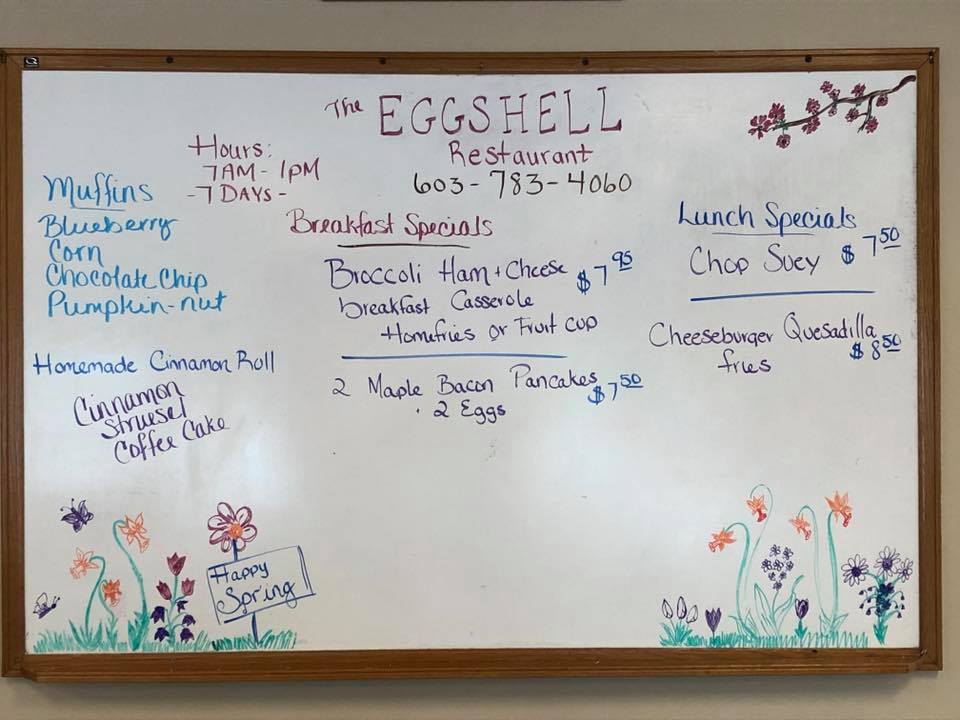 The EGGSHELL
Restaurant
603-783-4060
Hours:
7AM - 1PM
-7 DAYS-
Muffins
Blueberry
Corn
Chocolate Chip
Pumpkin-nut
Homemade Cinnamon Roll
Cinnamon
Struesel
Coffee Cake
Breakfast Specials
Broccoli Ham + Cheese $7.95
breakfast Casserole
Homefries or Fruit cup
2 Maple Bacon Pancakes $7.50
· 2 Eggs
Lunch Specials
Chop Suey $7.50
Cheeseburger Quesadilla
fries $8.50
Happy
Spring